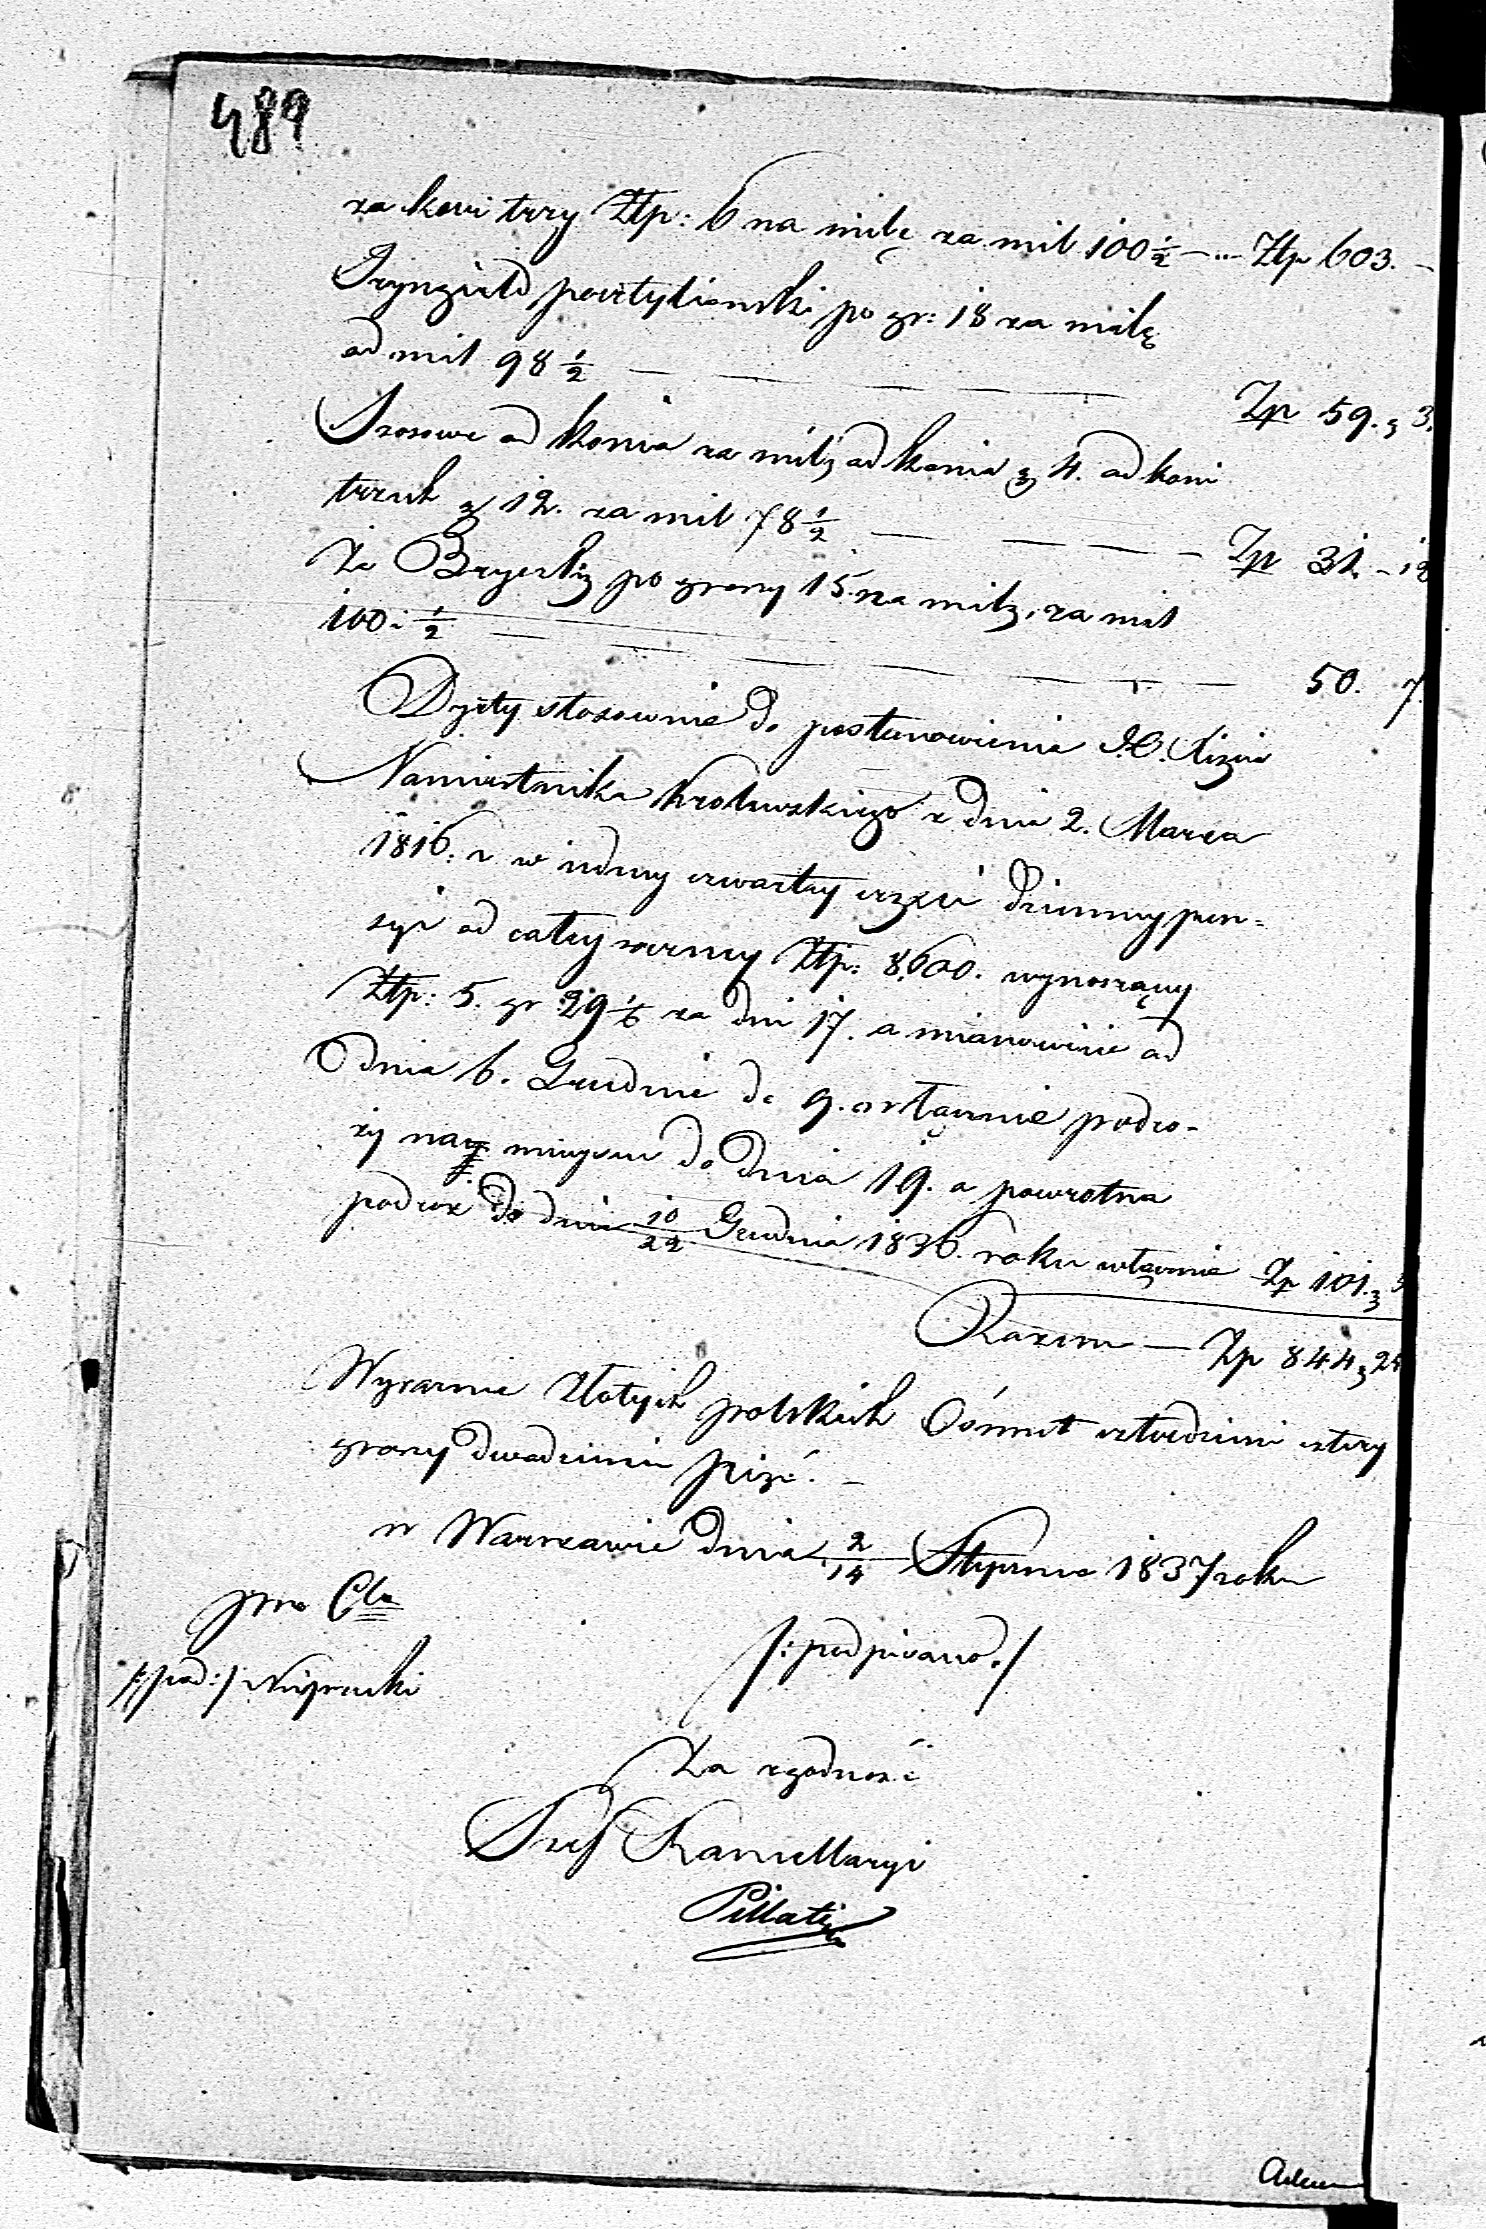 489
za koni trzy Złp: 6 na milę za mil 100 1/2 — Złp 603. —
Tryngield pocztylionski po gr: 18 za milę
od mil 98 1/2 — — — — — Zp 59. g 3.
Szosowe od konia za milę od konia g 4. od koni
trzech g 12. za mil 78 1/2 — — — Zp 31. - 12
Za Bryczkę po groszy 15. na milę, za mil
100 1/2 — — — — — 50. 7
Dyety stosownie do postanowienia J.O. Xięcia
Namiestnika Królewskiego z dnia 2. Marca
1816. r w iedney czwartey części dzienney pen-
syi od całey summy Złp: 8,600. wynoszącey
Złp: 5. gr 29 1/6 za dni 17. a mianowicie od
dnia 6. Grudnia do 9. włącznie podro-
ży na miejscu do dnia 19. a powrotna
podroż do dnia 10/22 Grudnia 1836. roku włącznie Zp 101. g
Razem — Zp 844 g 25
Wyraznie Złotych polskich Ośmset czterdzieści cztery
groszy dwadzieścia pięć. —
w Warszawie dnia 2/14 Stycznia 1837 roku
/: podpisano :/
/: pod :/
Za zgodność
Szef Kancellaryi
Pillati